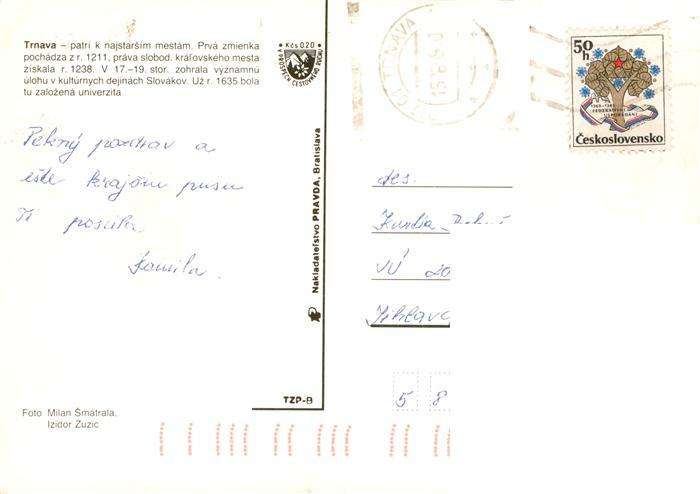 Trnava – patrí k najstarším mestám. Prvá zmienka
pochádza z r. 1211, práva slobod. kráľovského mesta
získala r. 1238. V 17.–19. stor. zohrala významnú
úlohu v kultúrnych dejinách Slovákov. Už r. 1635 bola
tu založená univerzita
Kčs 0,20
Pekný pozdrav a
ešte krajšiu pusu
Ti posiela
Kamila.
Foto Milan Šmátrala,
Izidor Zuzic
Nakladateľstvo PRAVDA, Bratislava
TZP-B
TRNAVA
50 h
1968-1988
Československo
des.
VÚ 20
Jihlava
5 8